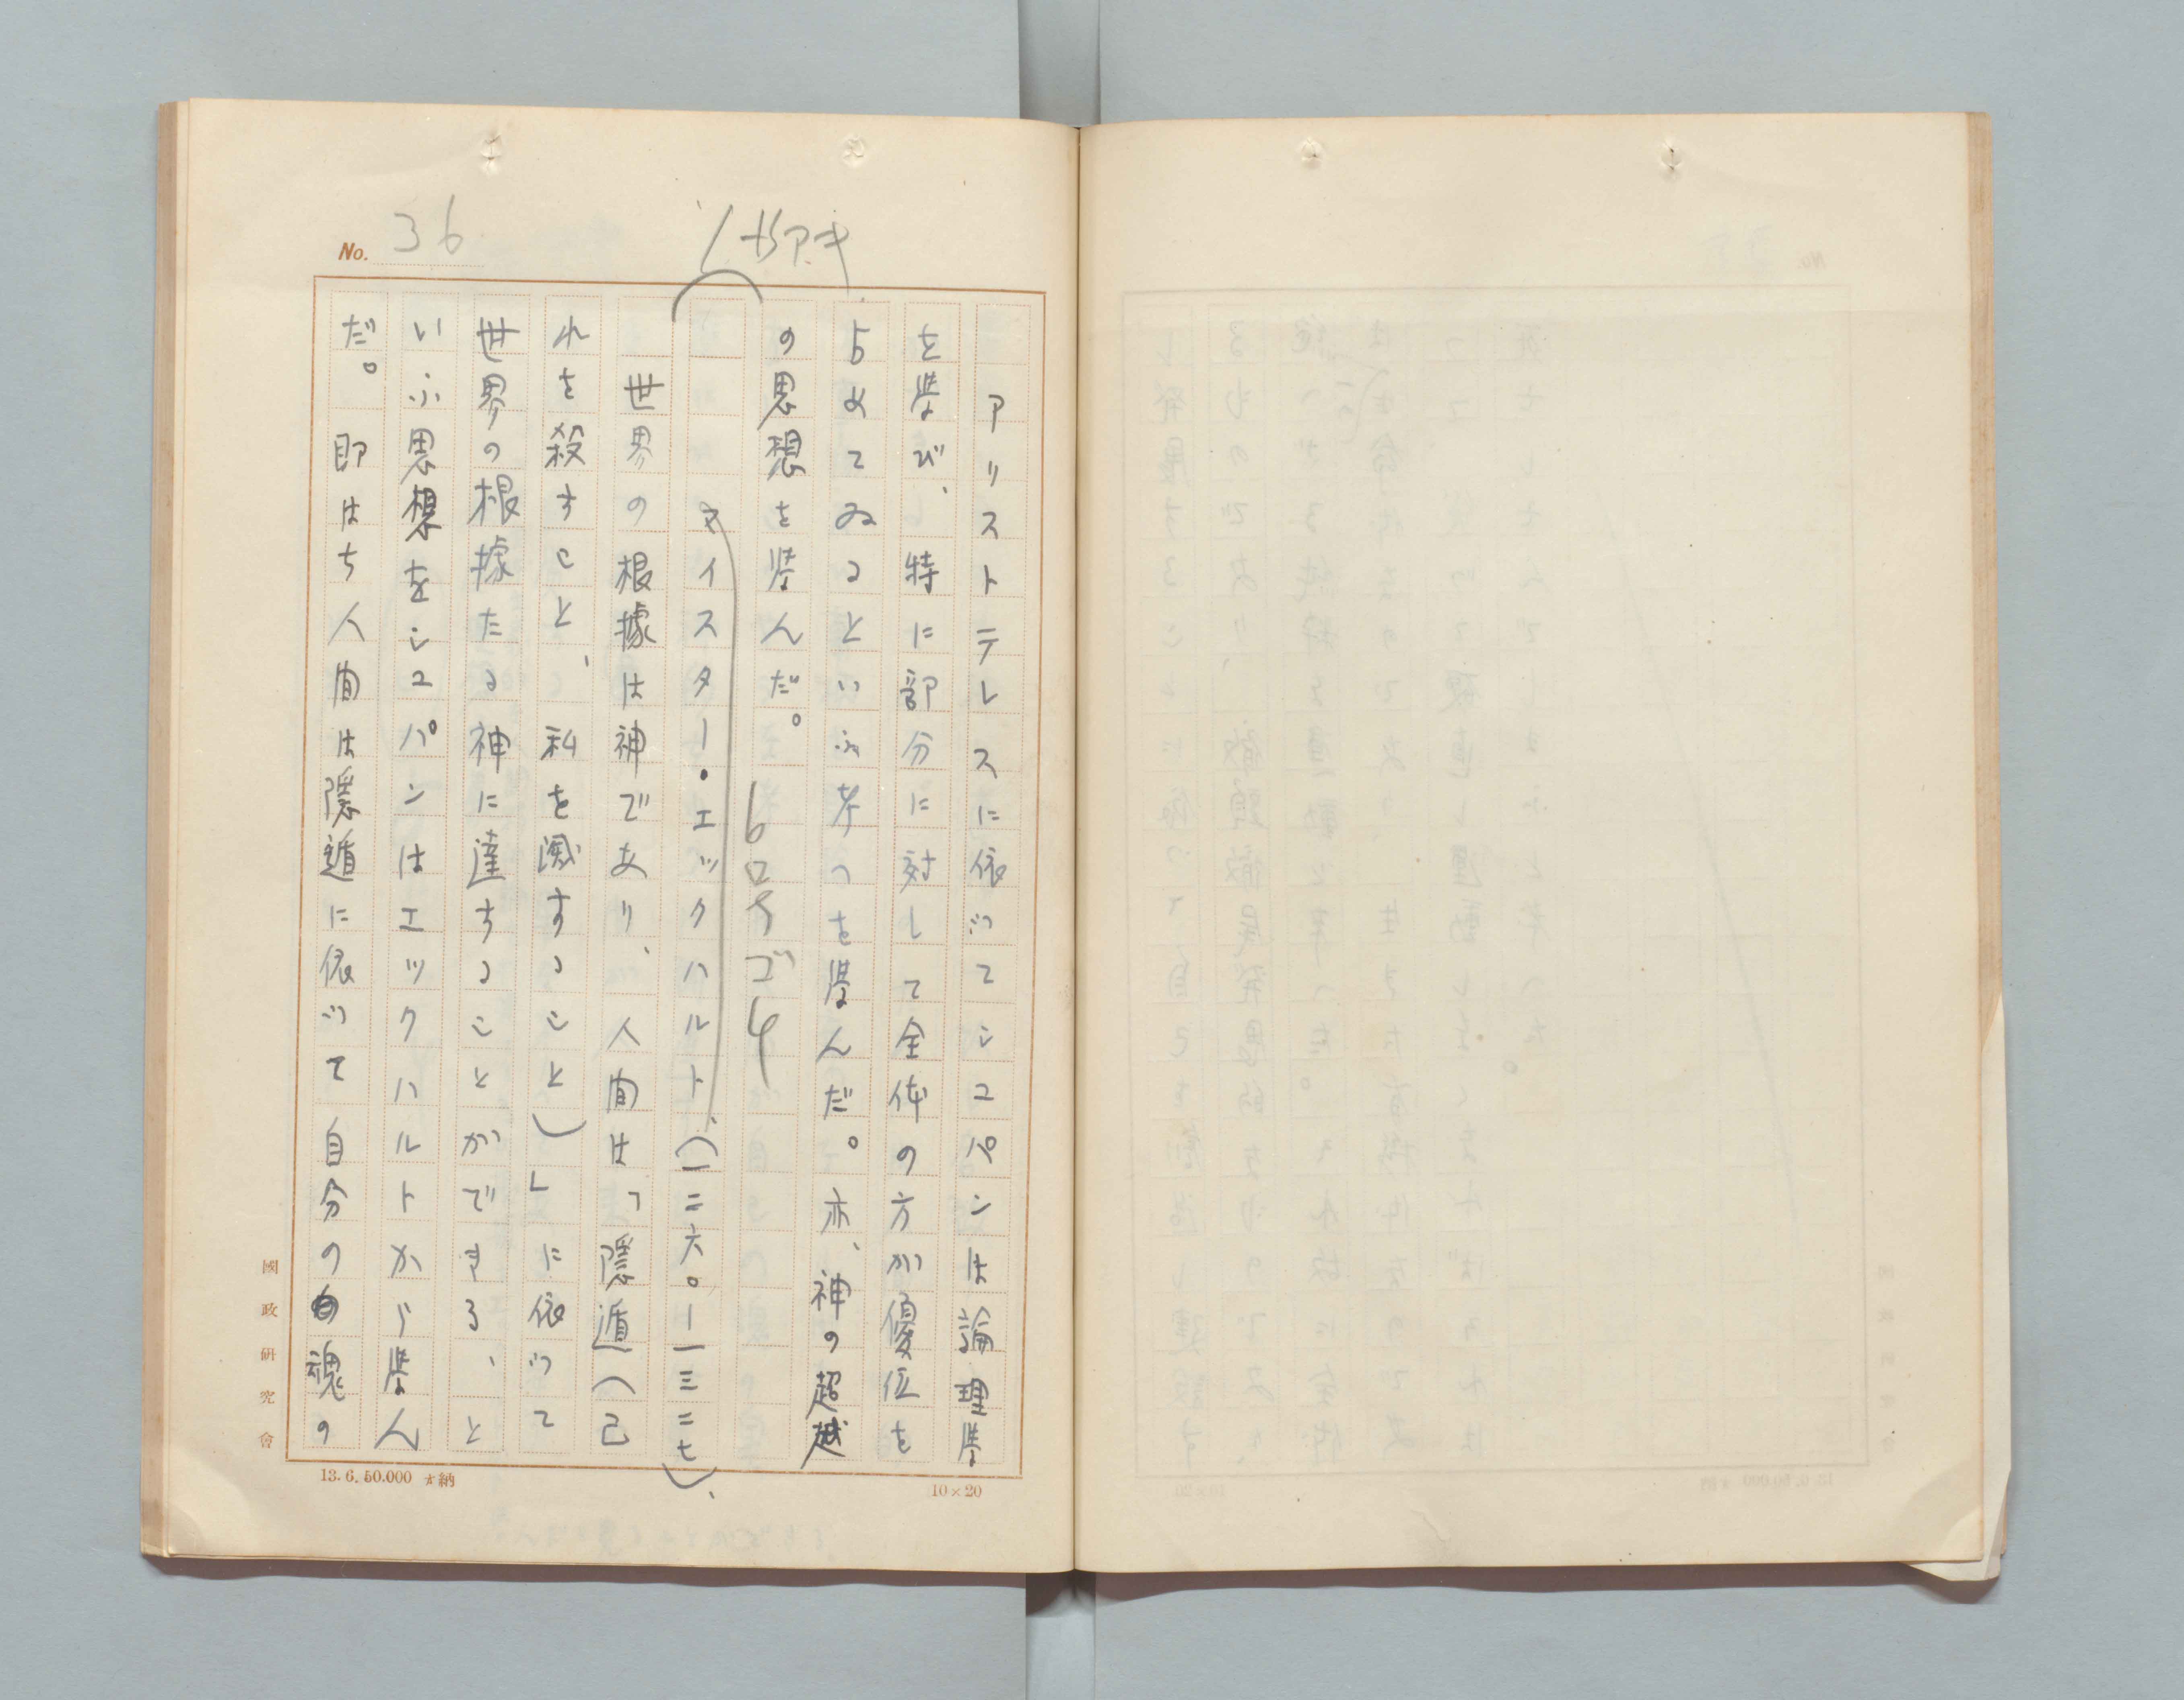 No. 36
1行アキ
アリストテレスに依つてシユパンは論理学
を学び、特に部分に対して全体の方が優位を
しめてゐるといふ考へを学んだ。亦、神の超越
の思想を学んだ。
6号ゴ4
マイスター・エツクハルト、(一二六〇―一三二七)、
世界の根據は神であり、人間は「隠遁(己
れを殺すこと、私を滅すること)」に依つて
世界の根據たる神に達することができる、と
いふ思想をシユパンはエツクハルトから学ん
だ。即はち人間は隠遁に依つて自分の魂の
國政研究會
13.6.50.000 納
10×20